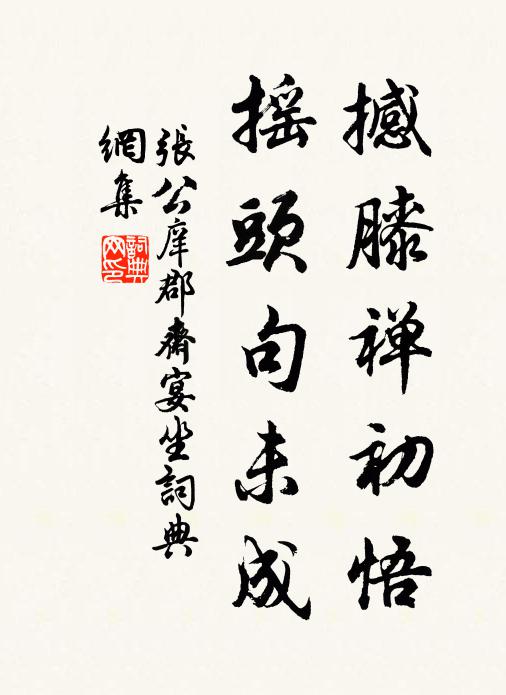 撼膝禅初悟
摇頭句未成
張公庠郡齋宴坐詞典
網集
詞典网印